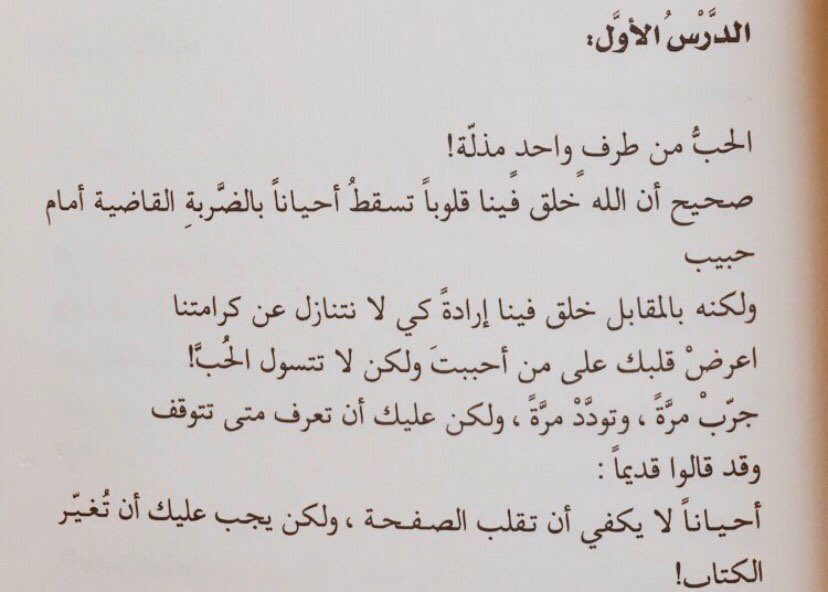 الدَّرْسُ الأوَّل:
الحبُّ من طرفٍ واحد مذلّة!
صحيح أن الله خلق فينا قلوباً تسقطُ أحياناً بالضَّربةِ القاضية أمام
حبيب
ولكنه بالمقابل خلق فينا إرادةً كي لا نتنازل عن كرامتنا
اعرضْ قلبك على من أحببتَ ولكن لا تتسول الحُبَّ!
جرّبْ مرَّةً ، وتودَّدْ مرَّةً ، ولكن عليك أن تعرف متى تتوقف
وقد قالوا قديماً :
أحياناً لا يكفي أن تقلب الصفحة ، ولكن يجب عليك أن تُغيّر
الكتاب!